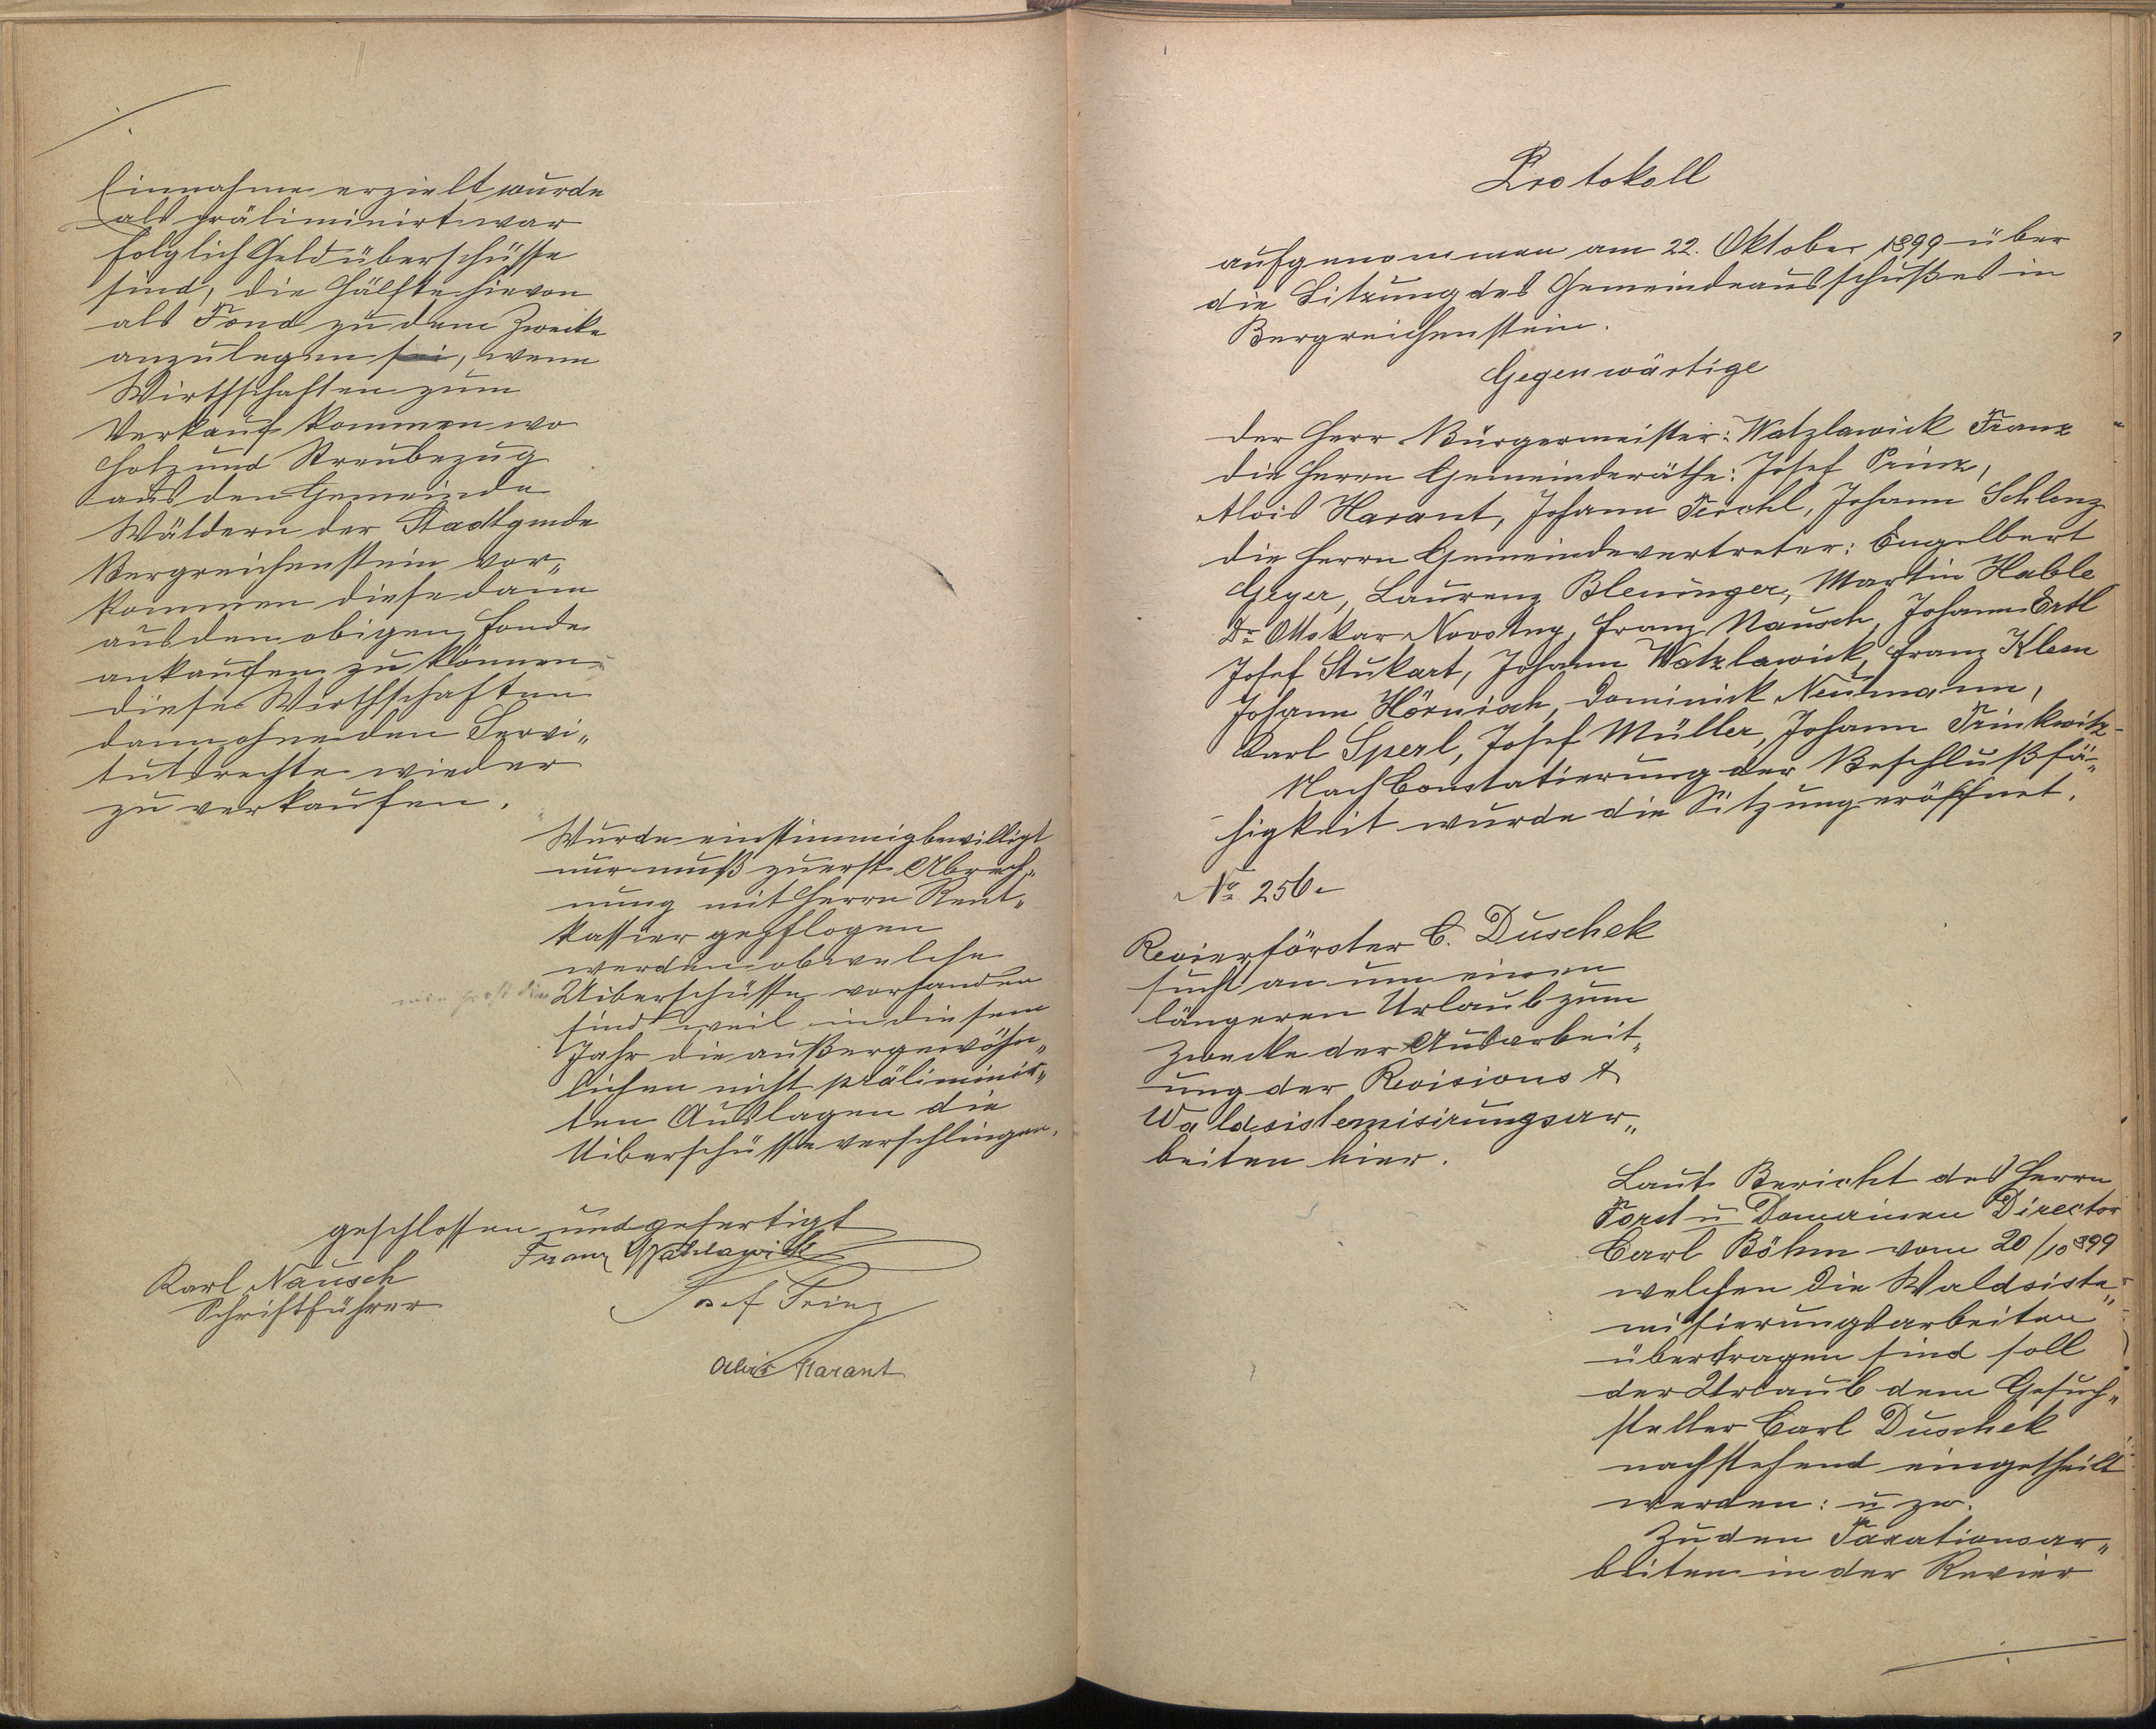 Einnahme erzielt wurde
als präliminirt war
folglich Geldüberschüsse
sind, die Hälfte hievon
als Fond zu dem Zwecke
anzulegen sei, wenn
Wirthschaften zum
Verkauf kommen wo
Holz und Streubezug
aus den Gemeinde
Wäldern der Stadtgmde
Bergreichenstein vor„
kommen diese dann
aus dem obigen Fonde
ankaufen zu können
diese Wirthschaften
dann ohne den Servi„
tutsrechte wieder
zu verkaufen.
Wurde einstimmig bewilligt
nur muß zuerst Abrech„
nung mit Herrn Rent„
kassier gepflogen
werden ob welche
Uiberschüsse vorhanden
sind weil in diesem
Jahr die außergewöhn„
lichen nicht präliminir„
ten Auslagen die
Uiberschüsse verschlingen.
geschlossen und gefertigt
Franz Watzlawick
Karl Nausch
Schriftführer
Josef Prinz
Alois Harant
Protokoll
aufgenommen am 22. Oktober 1899 über
die Sitzung des Gemeindeausschußes in
Bergreichenstein.
Gegenwärtige
der Herr Bürgermeister: Watzlawick Franz
die Herrn Gemeinderäthe: Josef Prinz,
Alois Harant, Johann Ferchl, Johann Schlenz
die Herrn Gemeindevertreter: Engelbert
Geyer, Laurenz Bleuinger, Martin Hable
Dr Ottokar Novotny, Franz Nausch, Johann Ertl
Josef Stukart, Johann Watzlawick, Franz Klem
Johann Hörnisch, Dominick Neumann,
Karl Sperl, Josef Müller, Johann Trinkwitz
Nach Constatierung der Beschlußfä„
higkeit wurde die Sitzung eröffnet.
No 256.
Revierförster C. Duschek
sucht an um einen
längeren Urlaub zum
Zwecke der Ausarbeit„
ung der Revisions &
Waldsistemisirungsar„
beiten hier.
Laut Bericht des Herrn
Forst u Domainen Director
Carl Böhm vom 20/10 899
welchen die Waldsiste„
misierungsarbeiten
übertragen sind soll
der Urlaub dem Gesuch„
steller Carl Duschek
nachstehend eingetheilt
werden: u zw.
Zu den Taxationsar„
beiten in der Revier